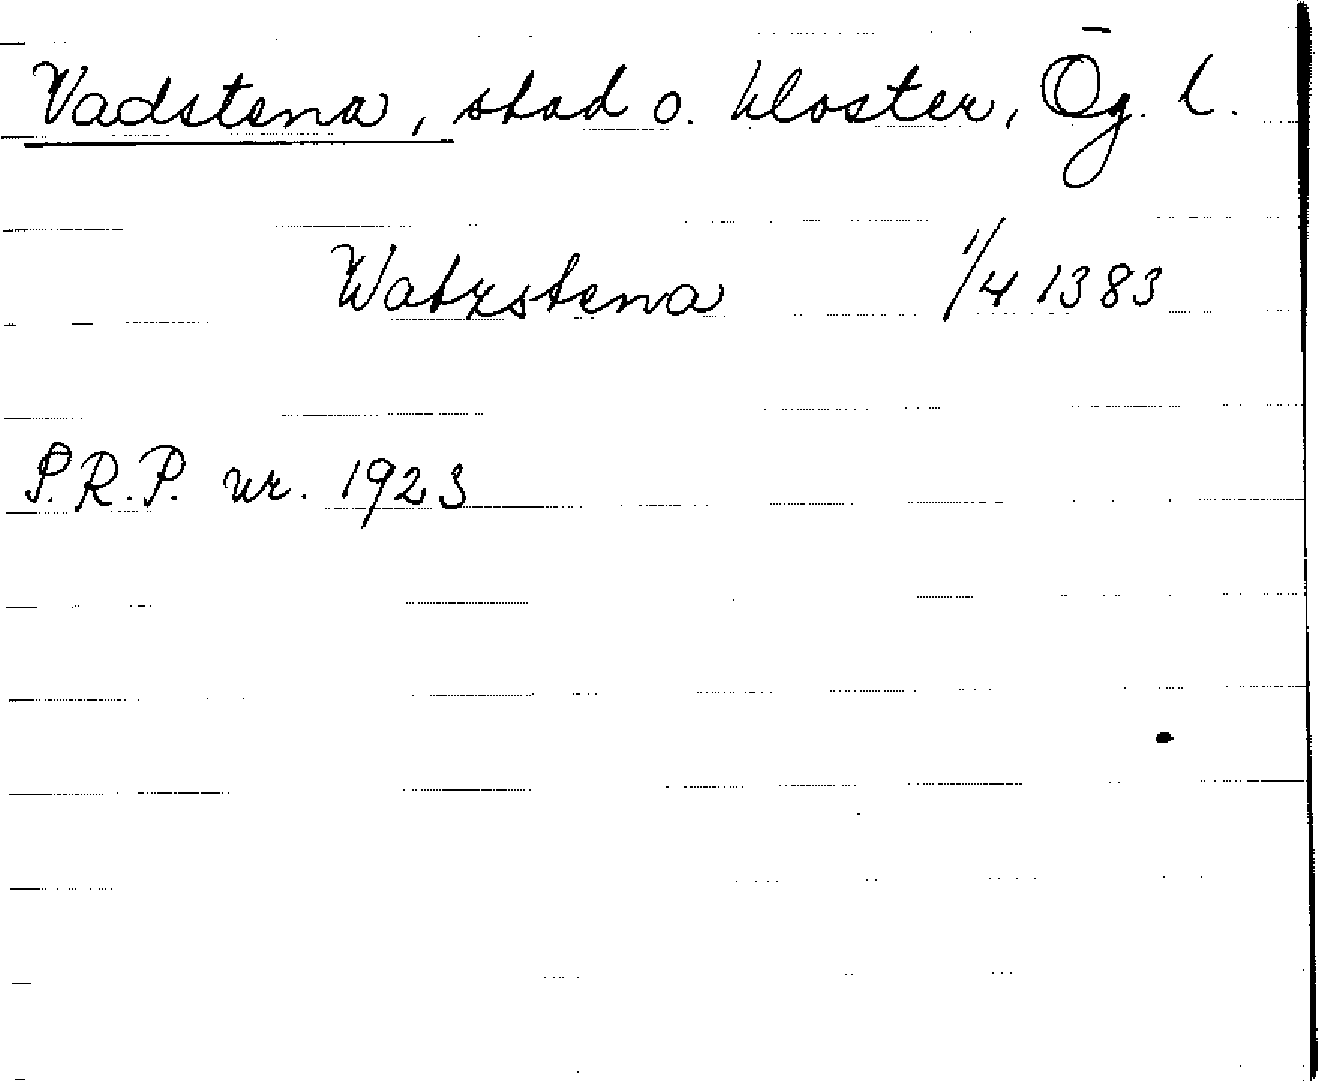 Vadstena, stad o. kloster, Ög. l.
Watzstena 1/4 1383
S.R.P. nr. 1923